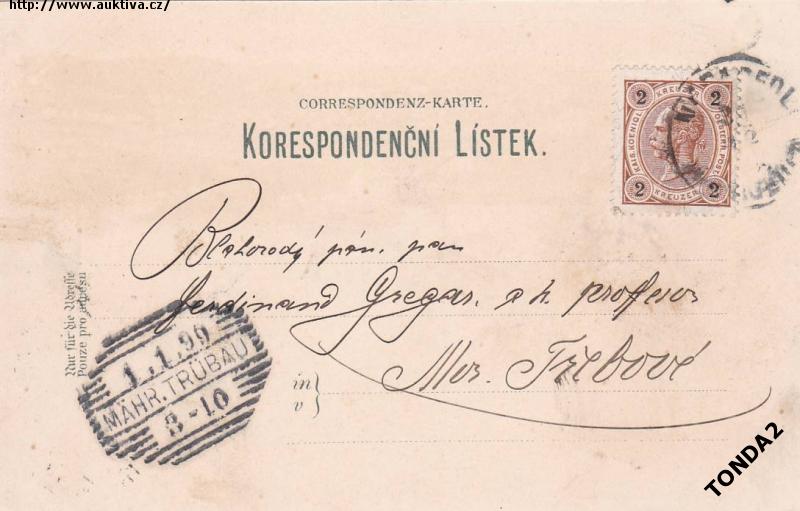 http://www.auktiva.cz/
CORRESPONDENZ-KARTE.
KORESPONDENČNÍ LÍSTEK.
2 KREUZER 2
KAIS. KOENIGL. OESTERR. POST.
2 KREUZER 2
Blahorodý pán, pan
Ferdinand Gregar, c. k. professor
Mor. Třebové
in
v
Nur für die Adresse
Pouze pro adresu
1.1.99
MÄHR. TRÜBAU
3-10
TONDA2